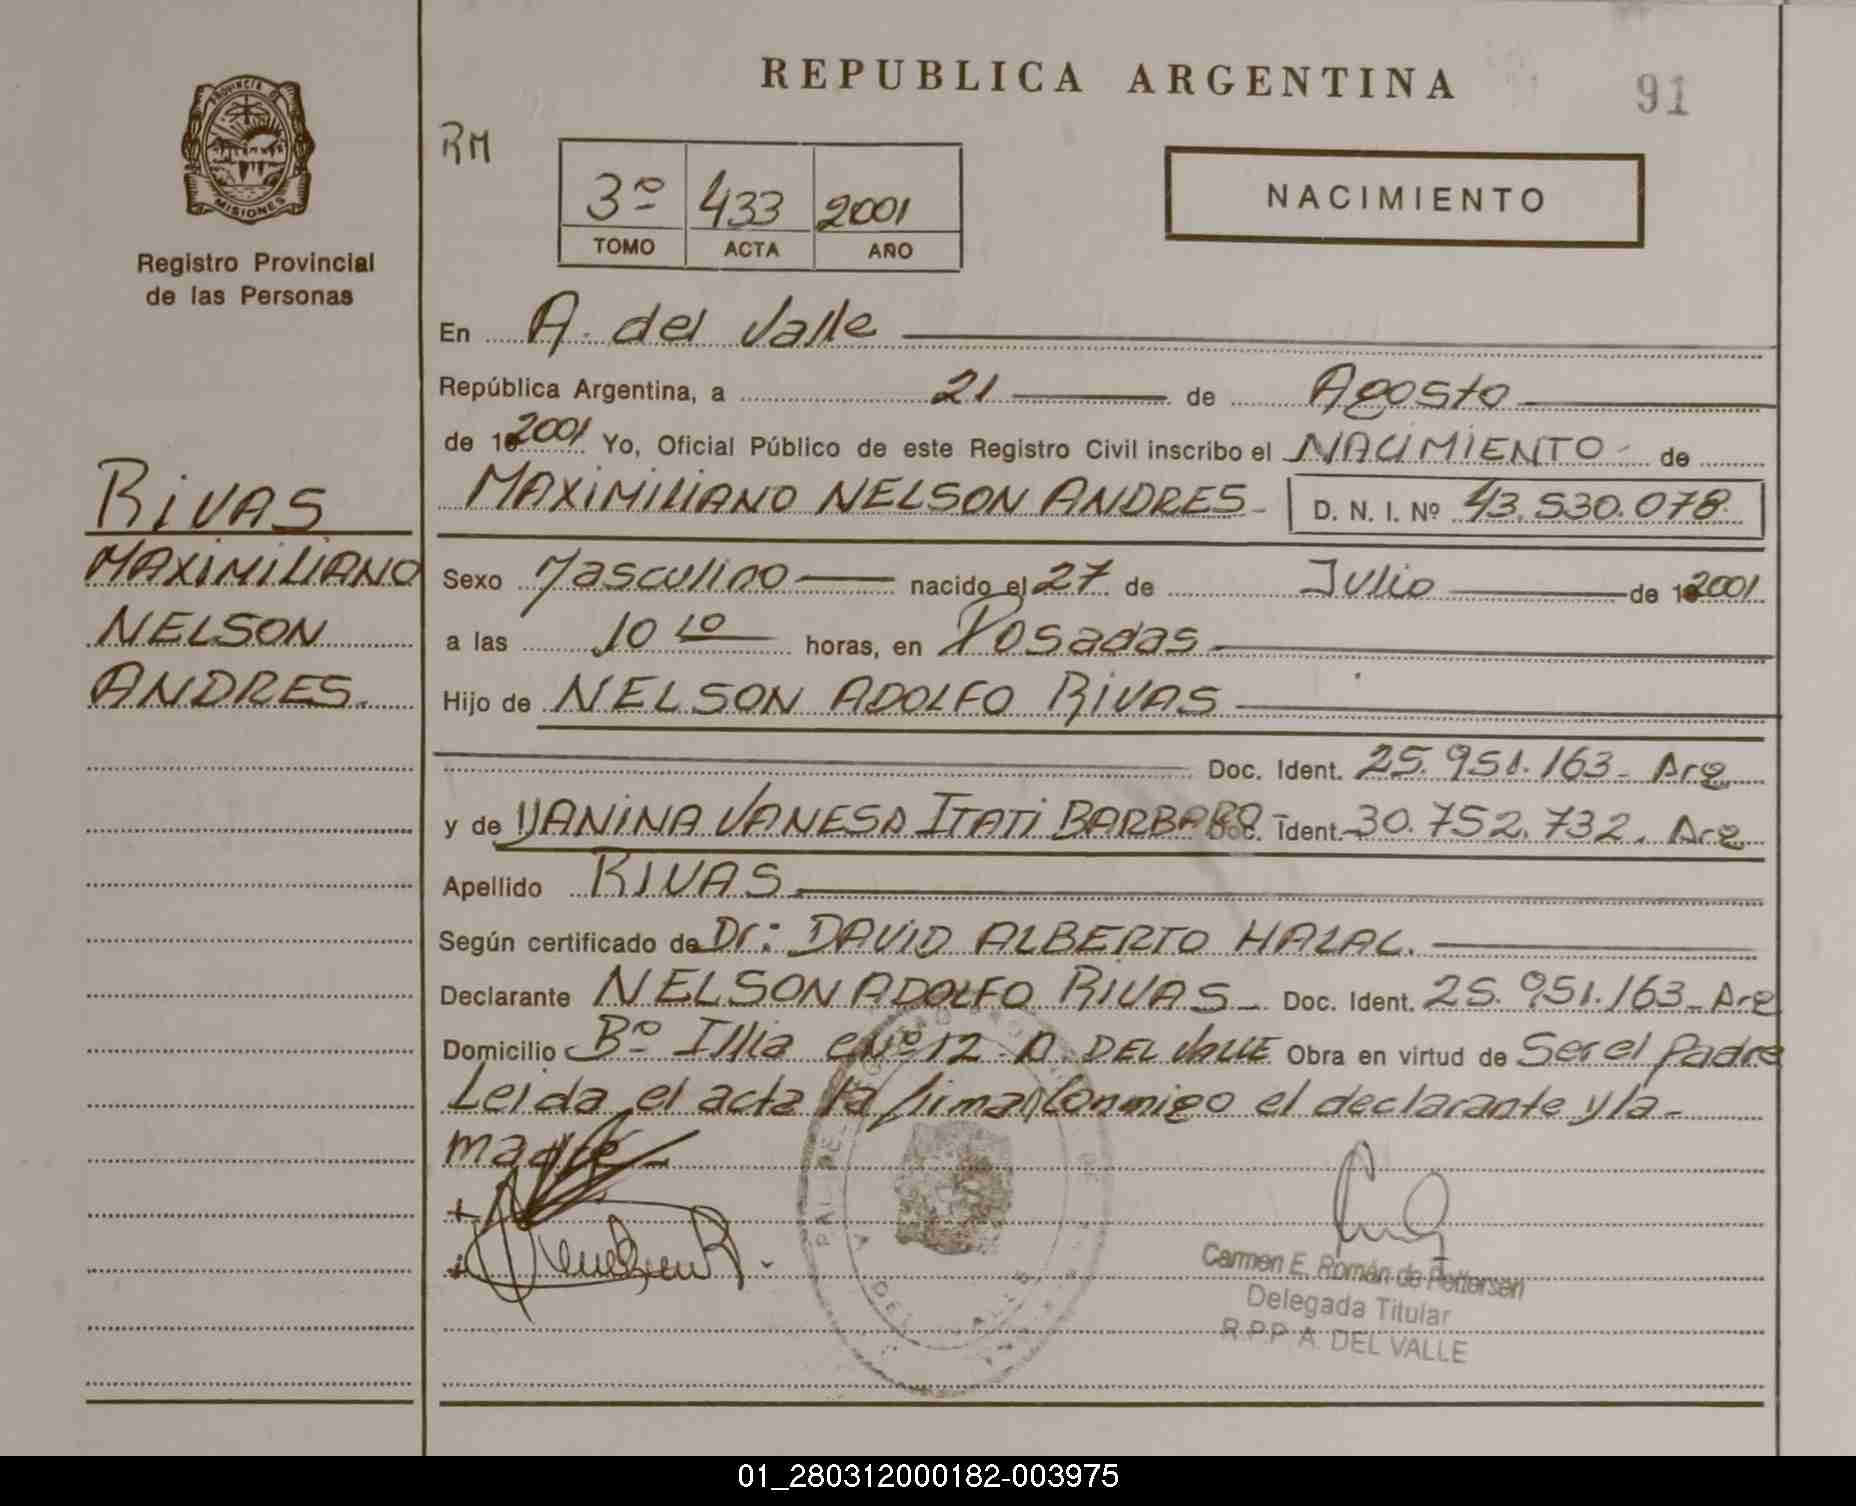 REPUBLICA ARGENTINA
91
PROVINCIA DE
MISIONES
Registro Provincial
de las Personas
RM
3º 433 2001
TOMO ACTA AÑO
NACIMIENTO
En A. del Valle
República Argentina, a 21 de Agosto
de 2001 Yo, Oficial Público de este Registro Civil inscribo el NACIMIENTO de
MAXIMILIANO NELSON ANDRES D. N. I. Nº 43.530.078
RIVAS
MAXIMILIANO
NELSON
ANDRES.
Sexo Masculino nacido el 27 de Julio de 2001
a las 10 10 horas, en Posadas
Hijo de NELSON ADOLFO RIVAS
Doc. Ident. 25.951.163- Arg
y de YANINA VANESA ITATI BARBARO Doc. Ident. 30.752.732. Arg
Apellido RIVAS
Según certificado de Dr: DAVID ALBERTO HALAC.
Declarante NELSON ADOLFO RIVAS Doc. Ident. 25.951.163- Arg
Domicilio Bº Illia c Nº 12 - A. DEL VALLE Obra en virtud de Ser el Padre
Leida el acta la firman Conmigo el declarante y la
madre
Carmen E. Román de Pettersen
Delegada Titular
R.P.P A. DEL VALLE
01_280312000182-003975